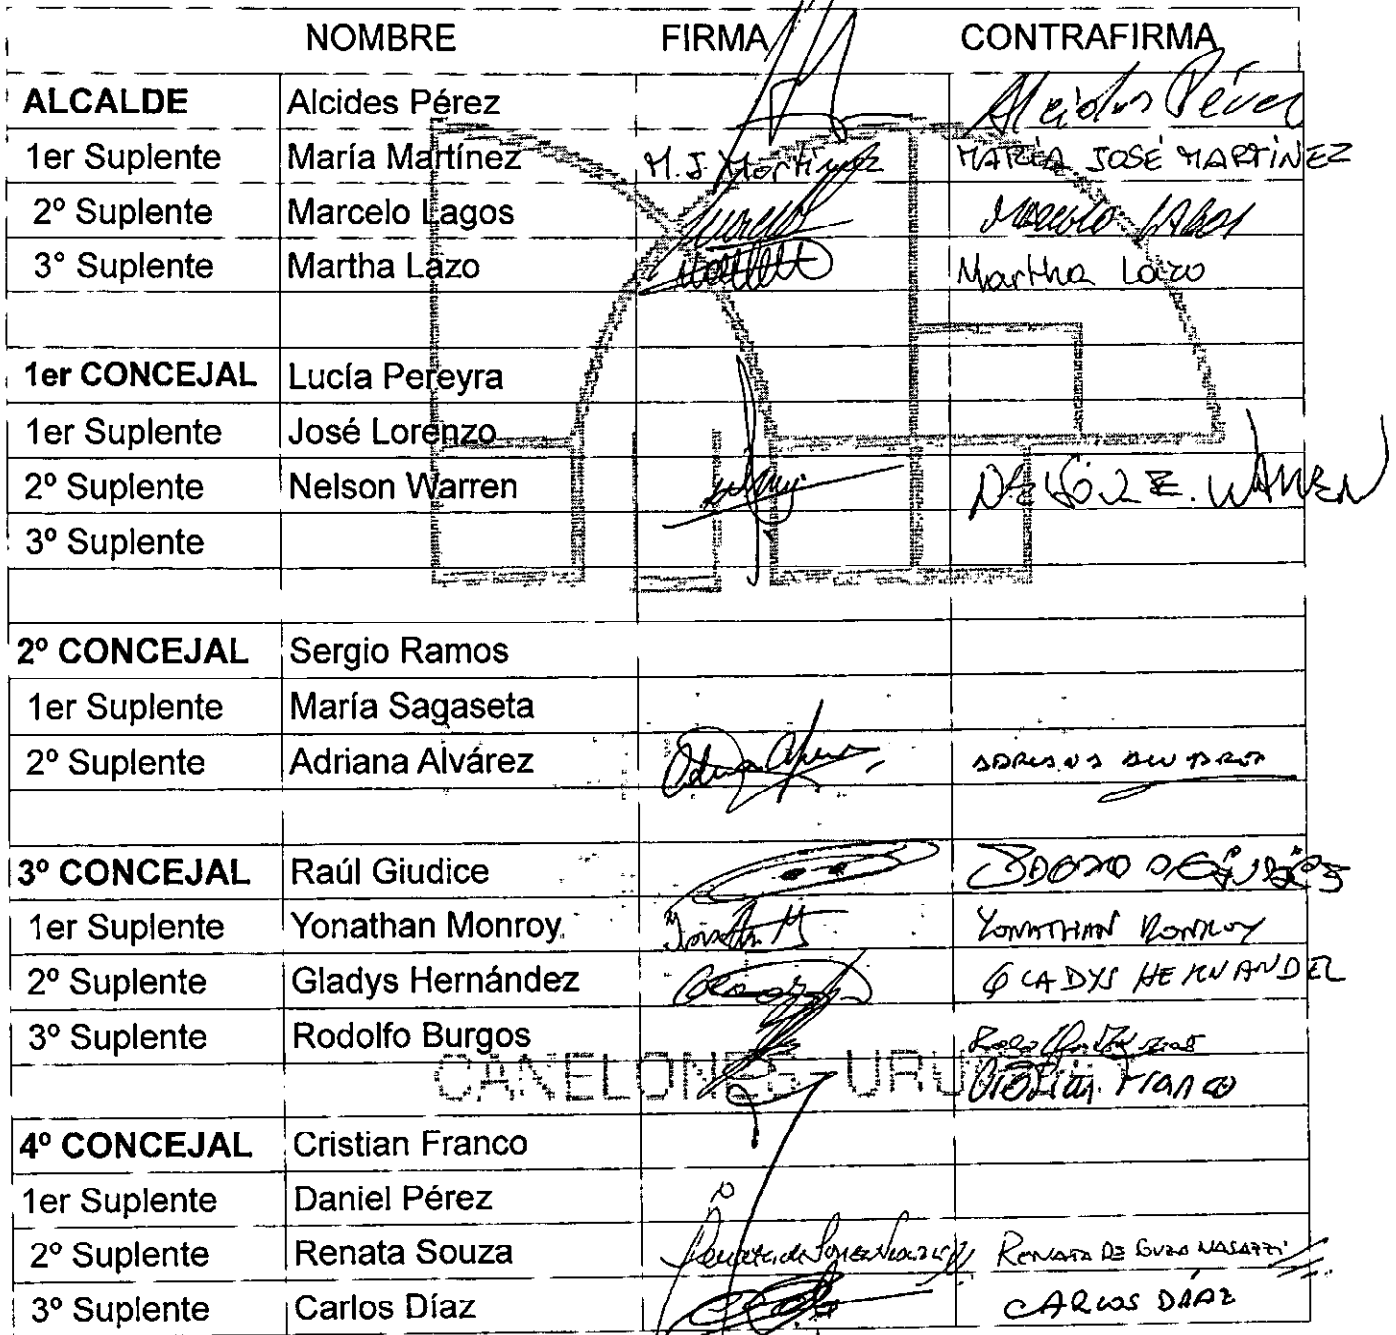 NOMBRE FIRMA CONTRAFIRMA
ALCALDE Alcides Pérez Alcides Pérez
1er Suplente María Martínez M. J. Martínez MARÍA JOSÉ MARTÍNEZ
2º Suplente Marcelo Lagos Marcelo LAGOS
3° Suplente Martha Lazo Martha Lazo
1er CONCEJAL Lucía Pereyra
1er Suplente José Lorenzo
2º Suplente Nelson Warren
3º Suplente
2º CONCEJAL Sergio Ramos
1er Suplente María Sagaseta
2º Suplente Adriana Alvárez ADRIANA ALVAREZ
3º CONCEJAL Raúl Giudice
1er Suplente Yonathan Monroy. YONATHAN MONROY
2º Suplente Gladys Hernández GLADYS HERNANDEZ
3º Suplente Rodolfo Burgos
CANELONES URUGUAY
Cristian Franco
4º CONCEJAL Cristian Franco
1er Suplente Daniel Pérez
2º Suplente Renata Souza RENATA DE SOUZA NASAZZI
3º Suplente Carlos Díaz CARLOS DÍAZ